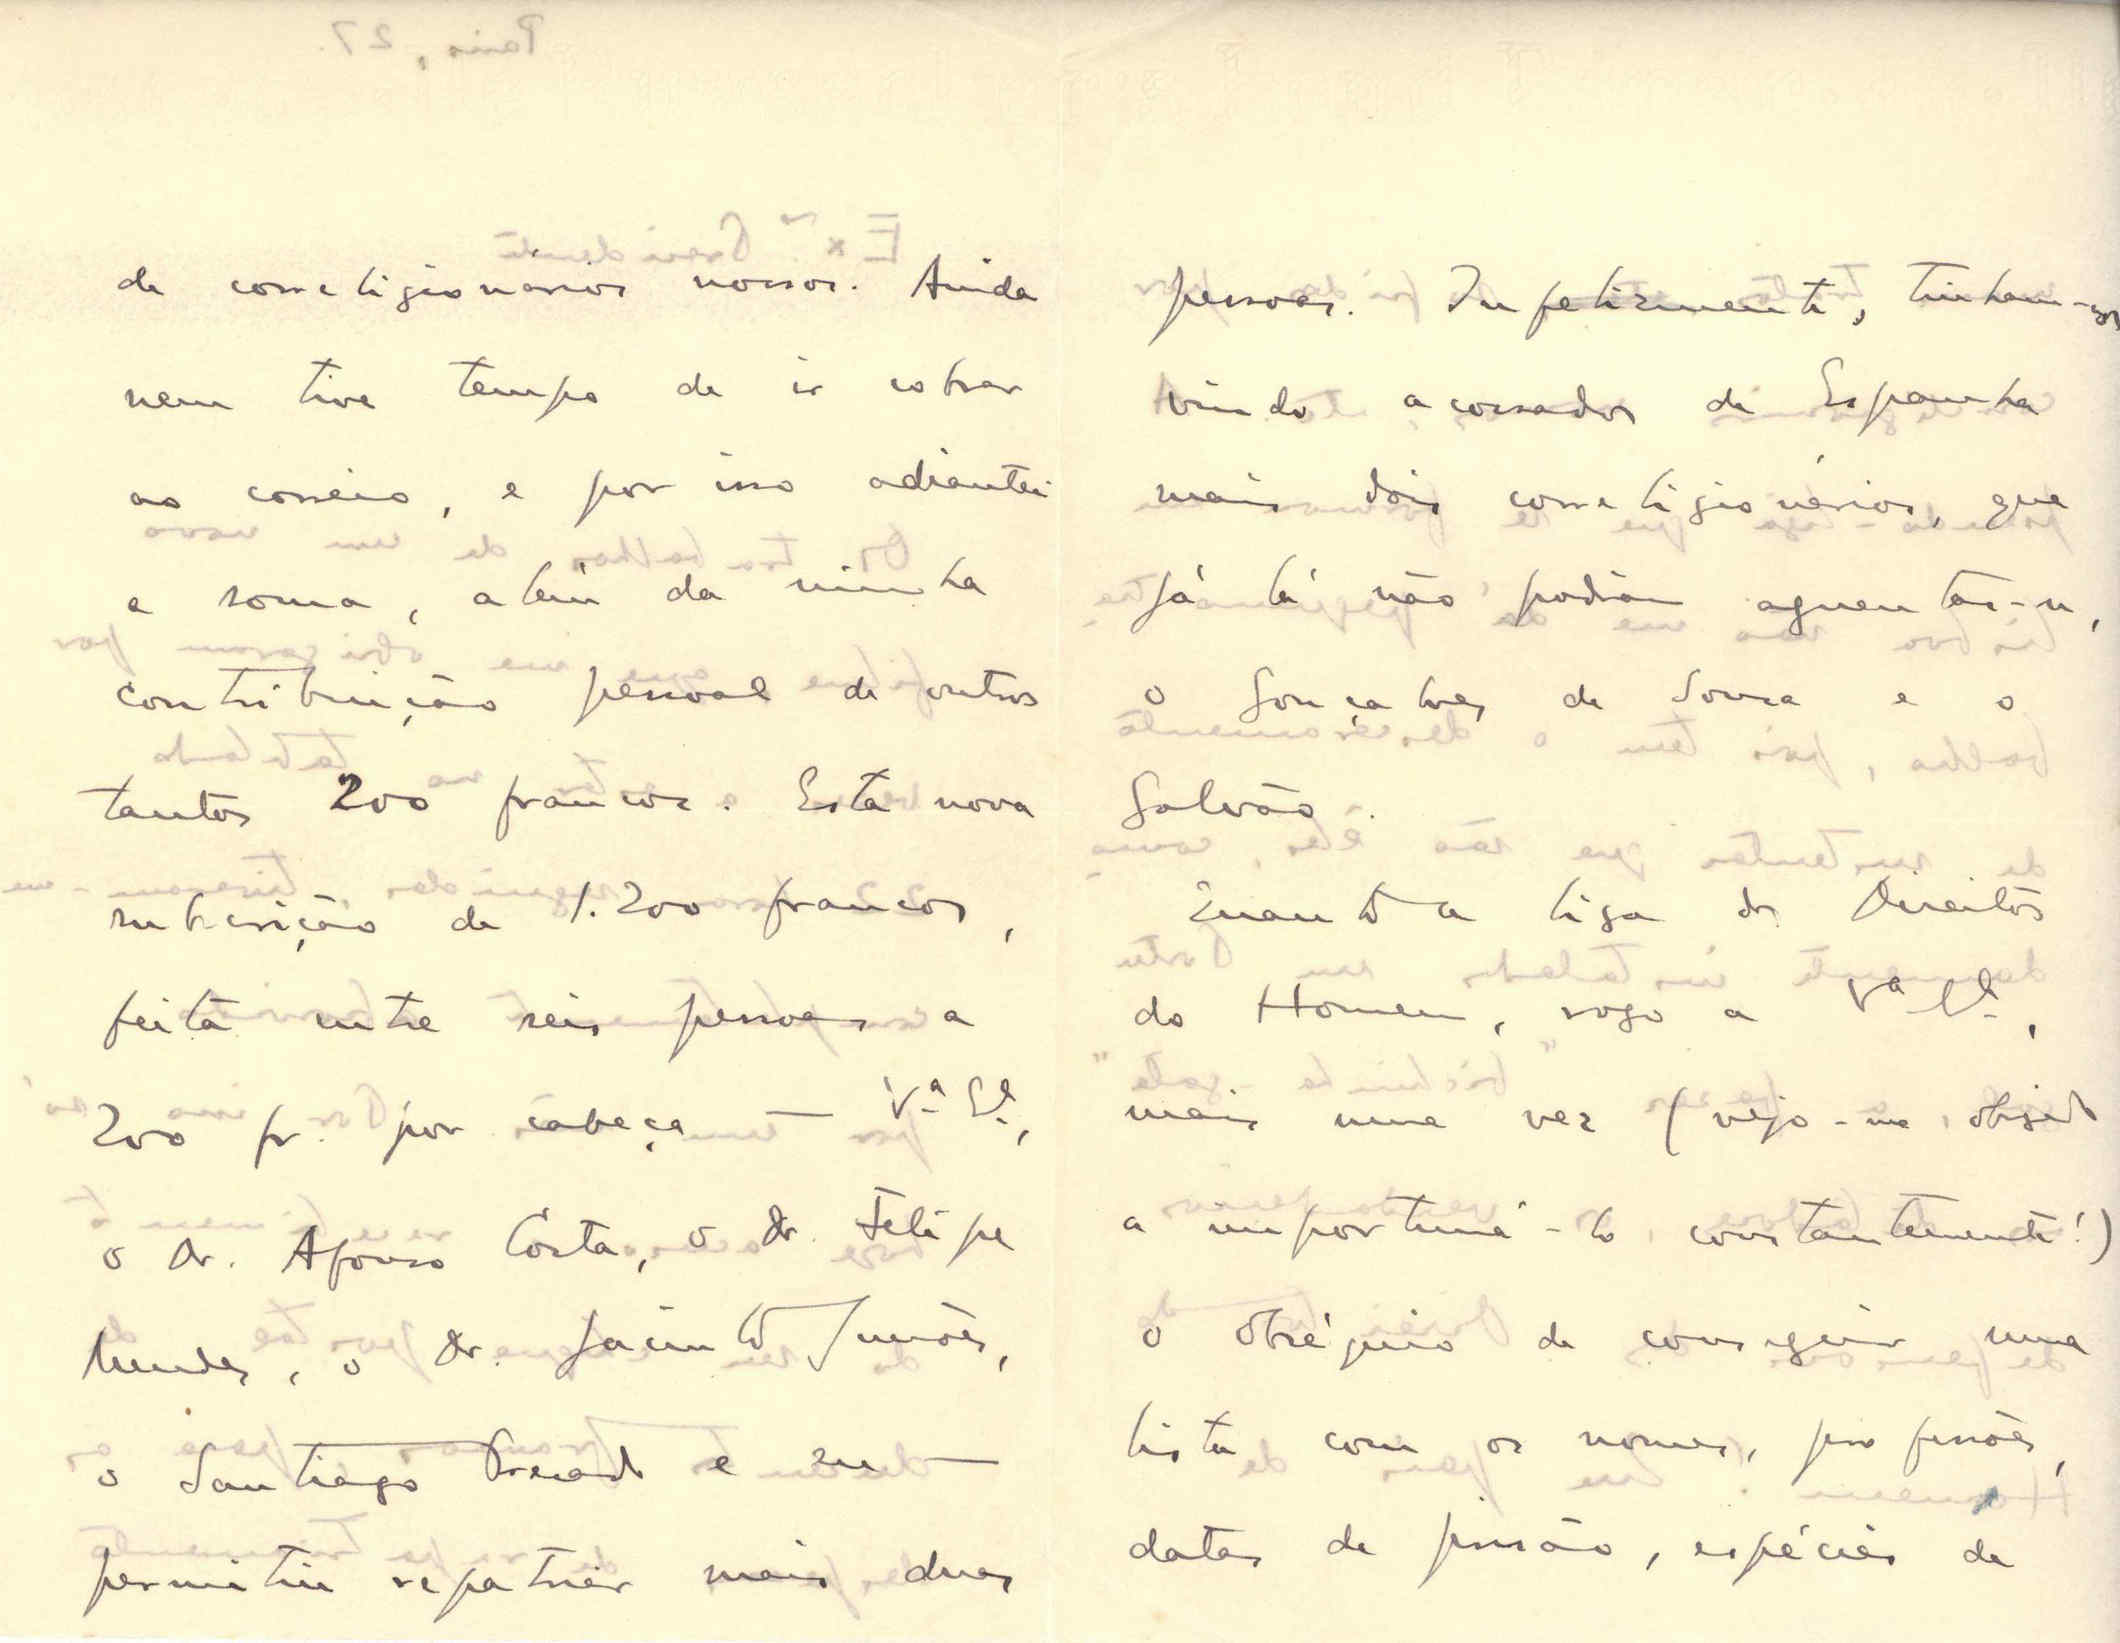 de correligionarios nossos. Ainda
nem tive tempo de ir cobrar
ao correio, e por isso adiantei
a soma, alêm da minha
contribuïção pessoal de outros
tantos 200 francos. Esta nova
subscrição de 1.200 francos,
feita entre seis pessoas a
200 fr. por cabeça — V.ª Ex.ª,
o dr. Afonso Costa, o dr. Felipe
Mendes, o dr. Jacinto Simões,
o Santiago Prezado e eu —
permitiu repatriar mais duas
pessoas. Infelizmente, tinham-nos
vindo acossados de Espanha
mais dois correligionários, que
já lá não podiam aguentar-se,
o Gonçalves de Sousa e o
Galvão.
Quanto a Liga dos Direitos
do Homem, rogo a V.ª Ex.ª,
mais uma vez (vejo-me obrigado
a importuná-lo constantemente!)
o obséquio de conseguir uma
lista com os nomes, profissões,
datas de prisão, espécies de